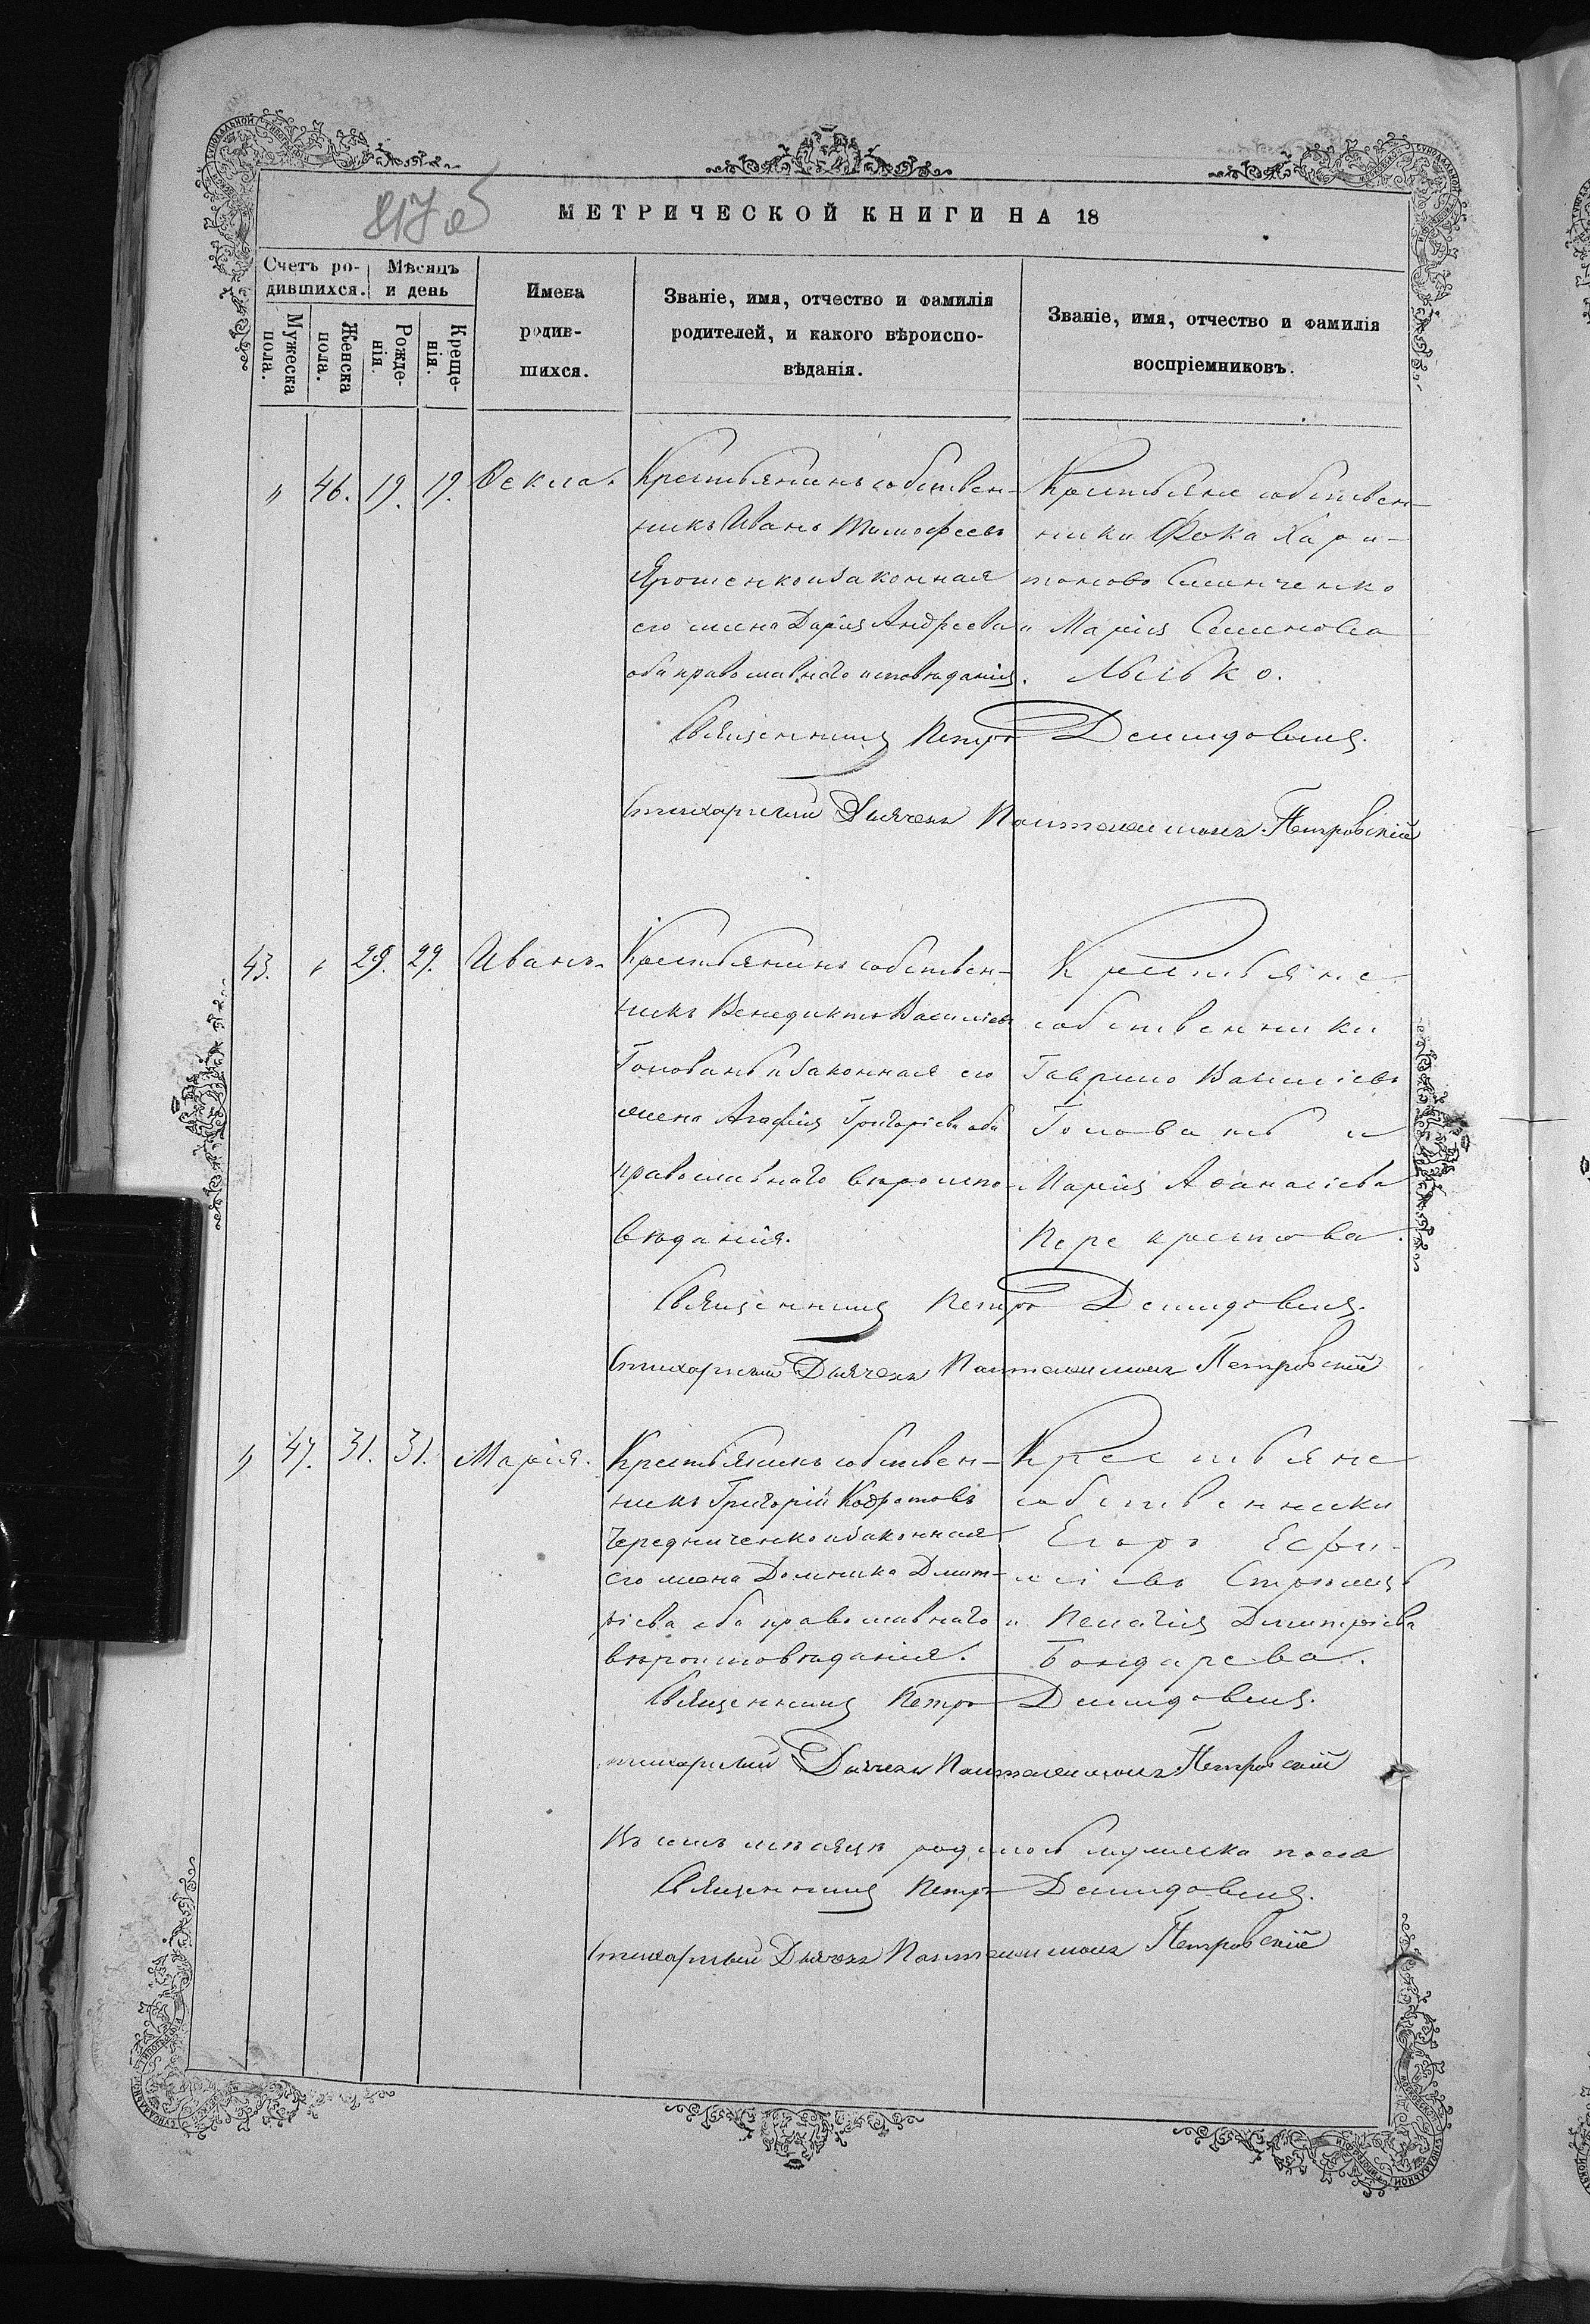 817 об
МЕТРИЧЕСКОЙ КНИГИ НА 18
Счетъ ро-
дившихся.
Мѣсяцъ
и день
Мужеска
пола.
Женска
пола.
Рожде-
нія.
Креще-
нія.
Имена
родив-
шихся.
Званіе, имя, отчество и фамилія
родителей, и какого вѣроиспо-
вѣданія.
Званіе, имя, отчество и фамилія
воспріемниковъ.
" 46. 19. 19. Ѳекла.
Крестьянинъ собствен-
никъ Иванъ Тимофеевъ
Ярошенко и законная
его жена Дарія Андреева
оба православнаго исповѣданія.
Крестьяне собствен-
ники Фока Хари-
тоновъ Симиченко
и Марія Семенова
Лысько.
Священникъ Петръ Демидовичъ.
Стихарный Дьячекъ Пантелеимонъ Петровскій
43. " 29. 29. Иванъ.
Крестьянинъ собствен-
никъ Венедиктъ Василіевъ
Головань и законная его
жена Агафія Григоріева оба
православнаго вѣроиспо-
вѣданія.
Крестьяне
собственники
Гаврило Василіевъ
Головань и
Марія Аѳанасіева
Перекрестова.
Священникъ Петръ Демидовичъ.
Стихарный Дьячекъ Пантелеимонъ Петровскій
" 47. 31. 31. Марія.
Крестьянинъ собствен-
никъ Григорій Кодратовъ
Чередниченко и законная
его жена Домника Димит-
ріева оба православнаго
вѣроисповѣданія.
Крестьяне
собственники
Егоръ Ефи-
міевъ
и Пелагія Димитріева
Бондарева.
Священникъ Петръ Демидовичъ.
Стихарный Дьячекъ Пантелеимонъ Петровскій
Въ семъ мѣсяцѣ родилось мужеска пола
Священникъ Петръ Демидовичъ.
Стихарный Дьячекъ Пантелеимонъ Петровскій